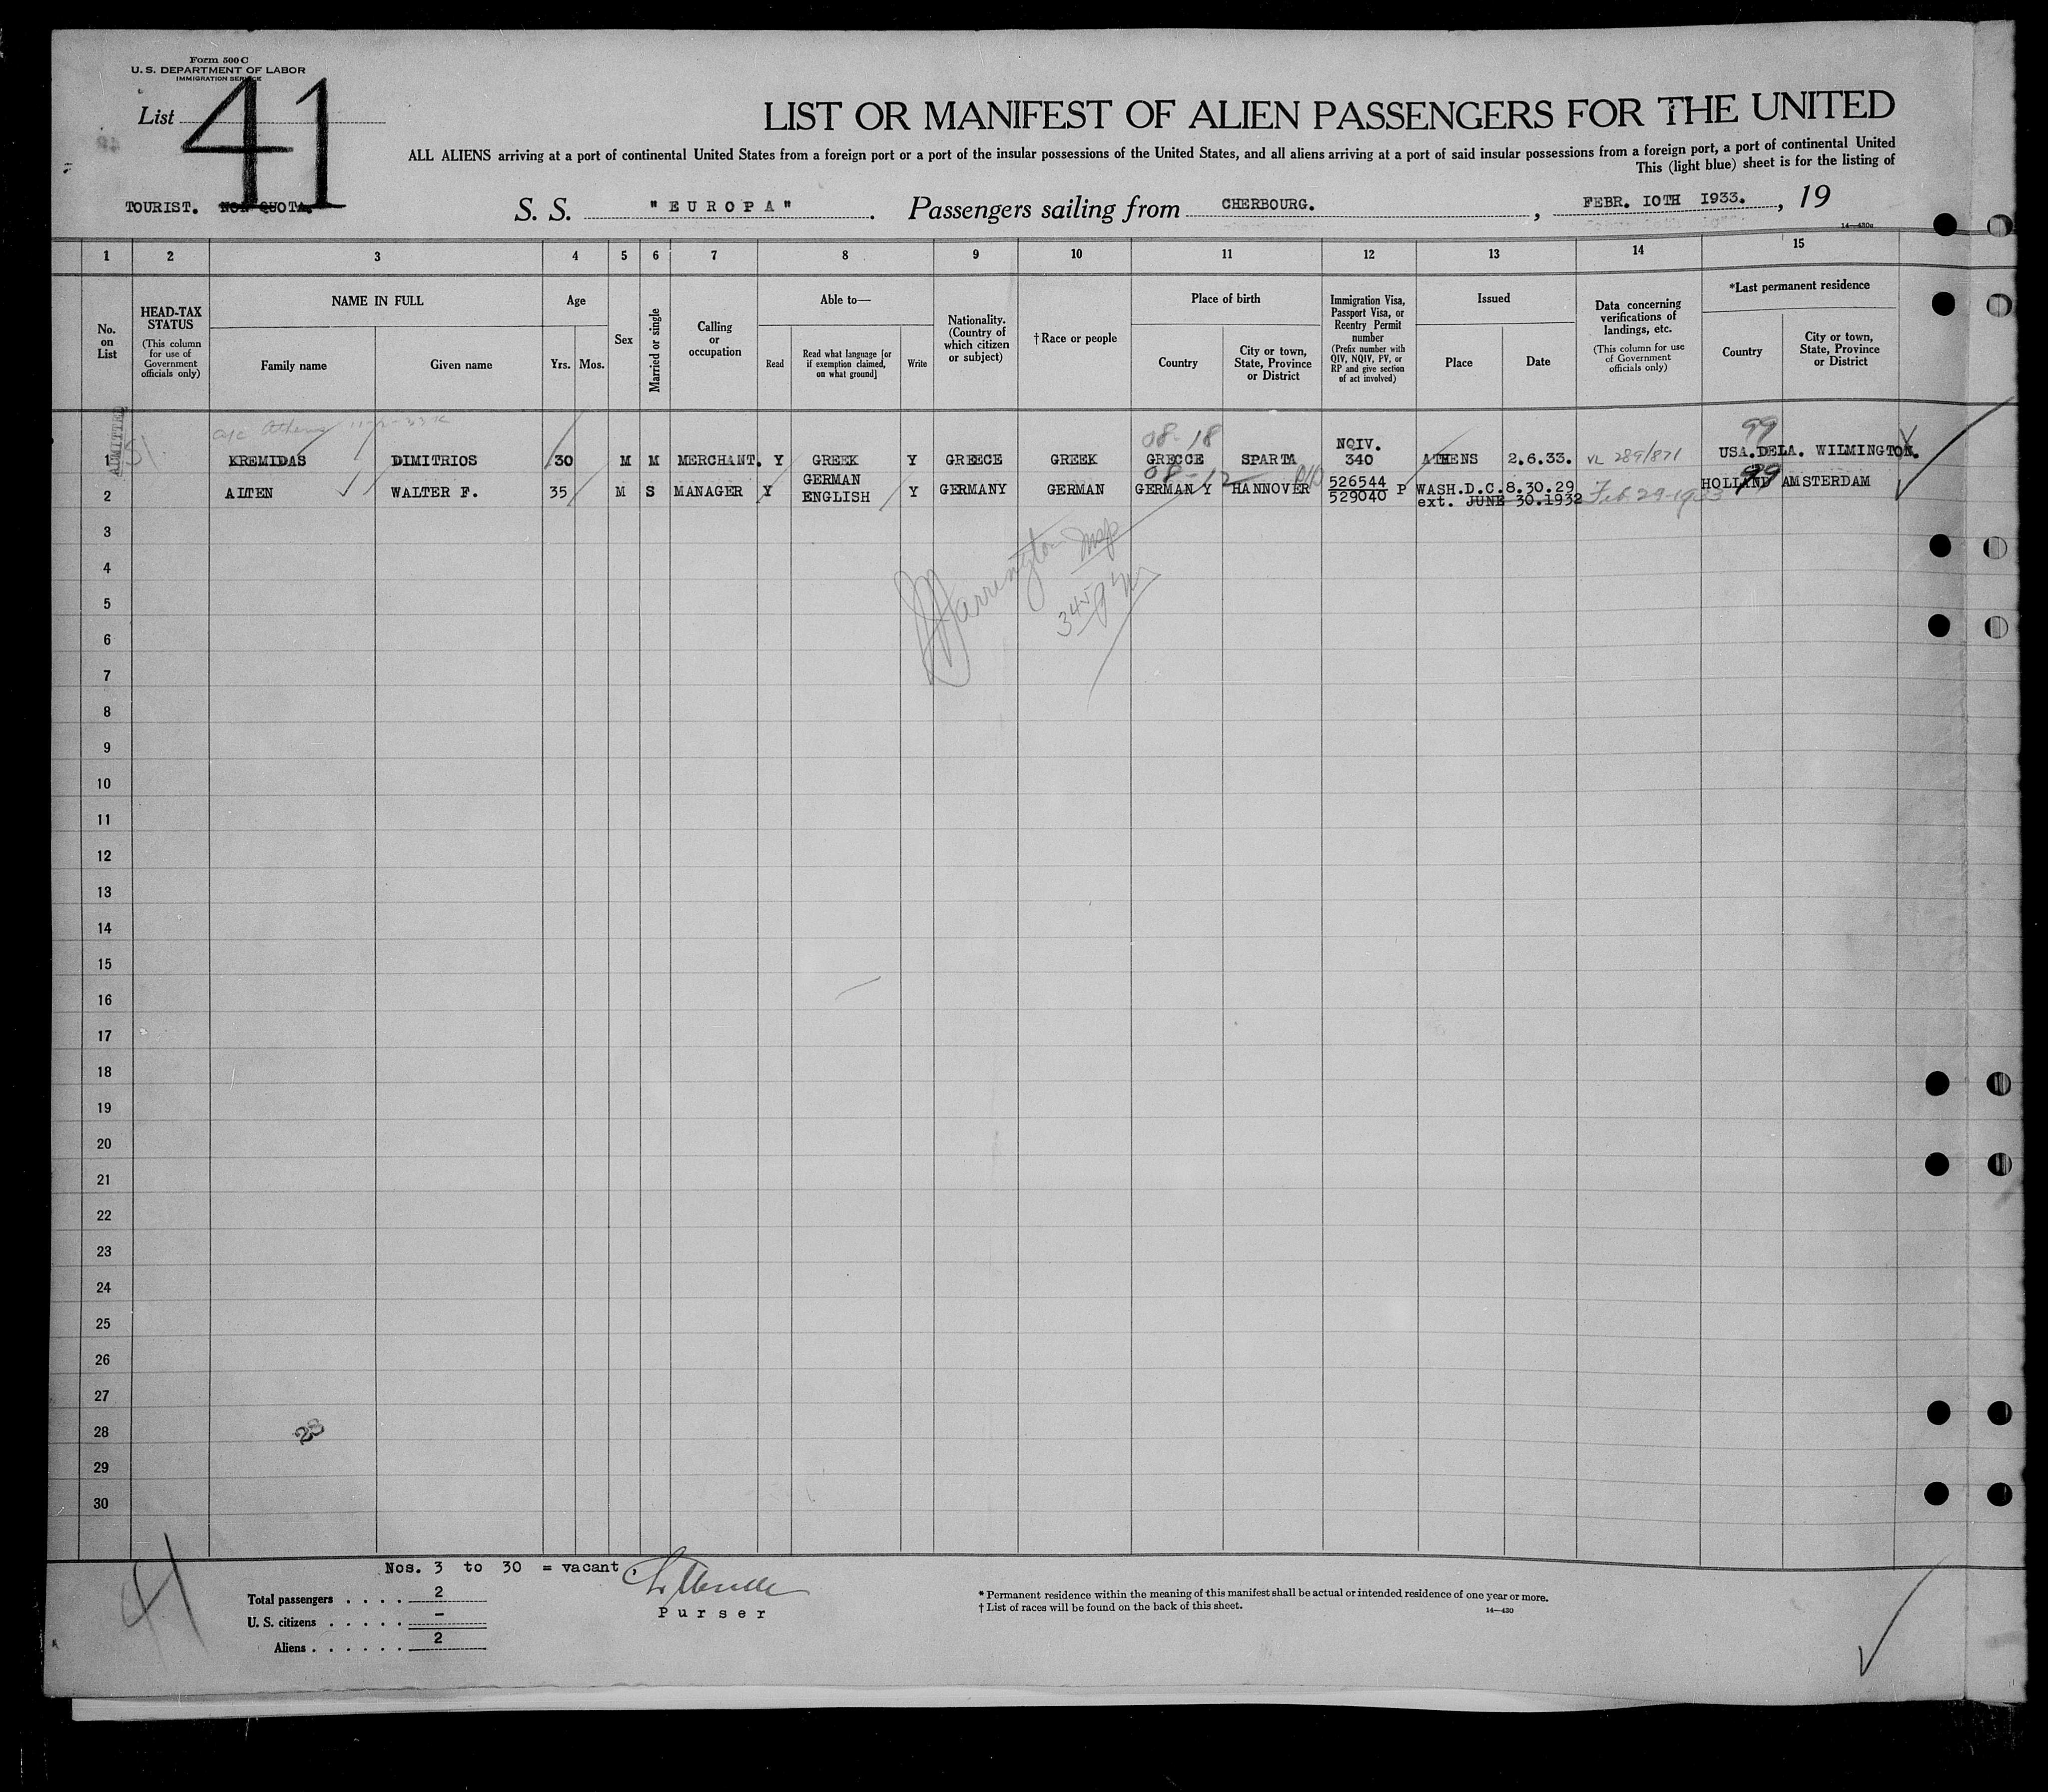 Form 500 C
U. S. DEPARTMENT OF LABOR
IMMIGRATION SERVICE
List 41
LIST OR MANIFEST OF ALIEN PASSENGERS FOR THE UNITED
ALL ALIENS arriving at a port of continental United States from a foreign port or a port of the insular possessions of the United States, and all aliens arriving at a port of said insular possessions from a foreign port, a port of continental United
This (light blue) sheet is for the listing of
TOURIST. NON QUOTA. S. S. "EUROPA". Passengers sailing from CHERBOURG. , FEBR. 10TH 1933. , 19
14—430a
1 2 3 4 5 6 7 8 9 10 11 12 13 14 15
No. on List
HEAD-TAX STATUS (This column for use of Government officials only)
NAME IN FULL
Family name
Given name
Age
Yrs. Mos.
Sex
Married or single
Calling or occupation
Able to—
Read
Read what language [or if exemption claimed, on what ground]
Write
Nationality. (Country of which citizen or subject)
† Race or people
Place of birth
Country
City or town, State, Province or District
Immigration Visa, Passport Visa, or Reentry Permit number (Prefix number with QIV, NQIV, PV, or RP and give section of act involved)
Issued
Place
Date
Data concerning verifications of landings, etc. (This column for use of Government officials only)
*Last permanent residence
Country
City or town, State, Province or District
ADMITTED
08-18 99
1 KREMIDAS DIMITRIOS 30 M M MERCHANT. Y GREEK Y GREECE GREEK GRECCE SPARTA NQIV. 340 ATHENS 2.6.33. VL 289/871 USA.DELA. WILMINGTON.
08-12 99
2 ALTEN WALTER F. 35 M S MANAGER Y GERMAN ENGLISH Y GERMANY GERMAN GERMAN Y HANNOVER 526544 529040 P WASH.D.C. 8.30.29 ext. JUNE 30.1932 Feb. 29-1933 HOLLAND AMSTERDAM
3
4
5
6
7
8
9
10
11
12
13
14
15
16
17
18
19
20
21
22
23
24
25
26
27
28
29
30
23
41
Nos. 3 to 30 = vacant.
Total passengers . . . . 2
U. S. citizens . . . . . –
Aliens . . . . . . 2
Purser
* Permanent residence within the meaning of this manifest shall be actual or intended residence of one year or more.
† List of races will be found on the back of this sheet.
14—430